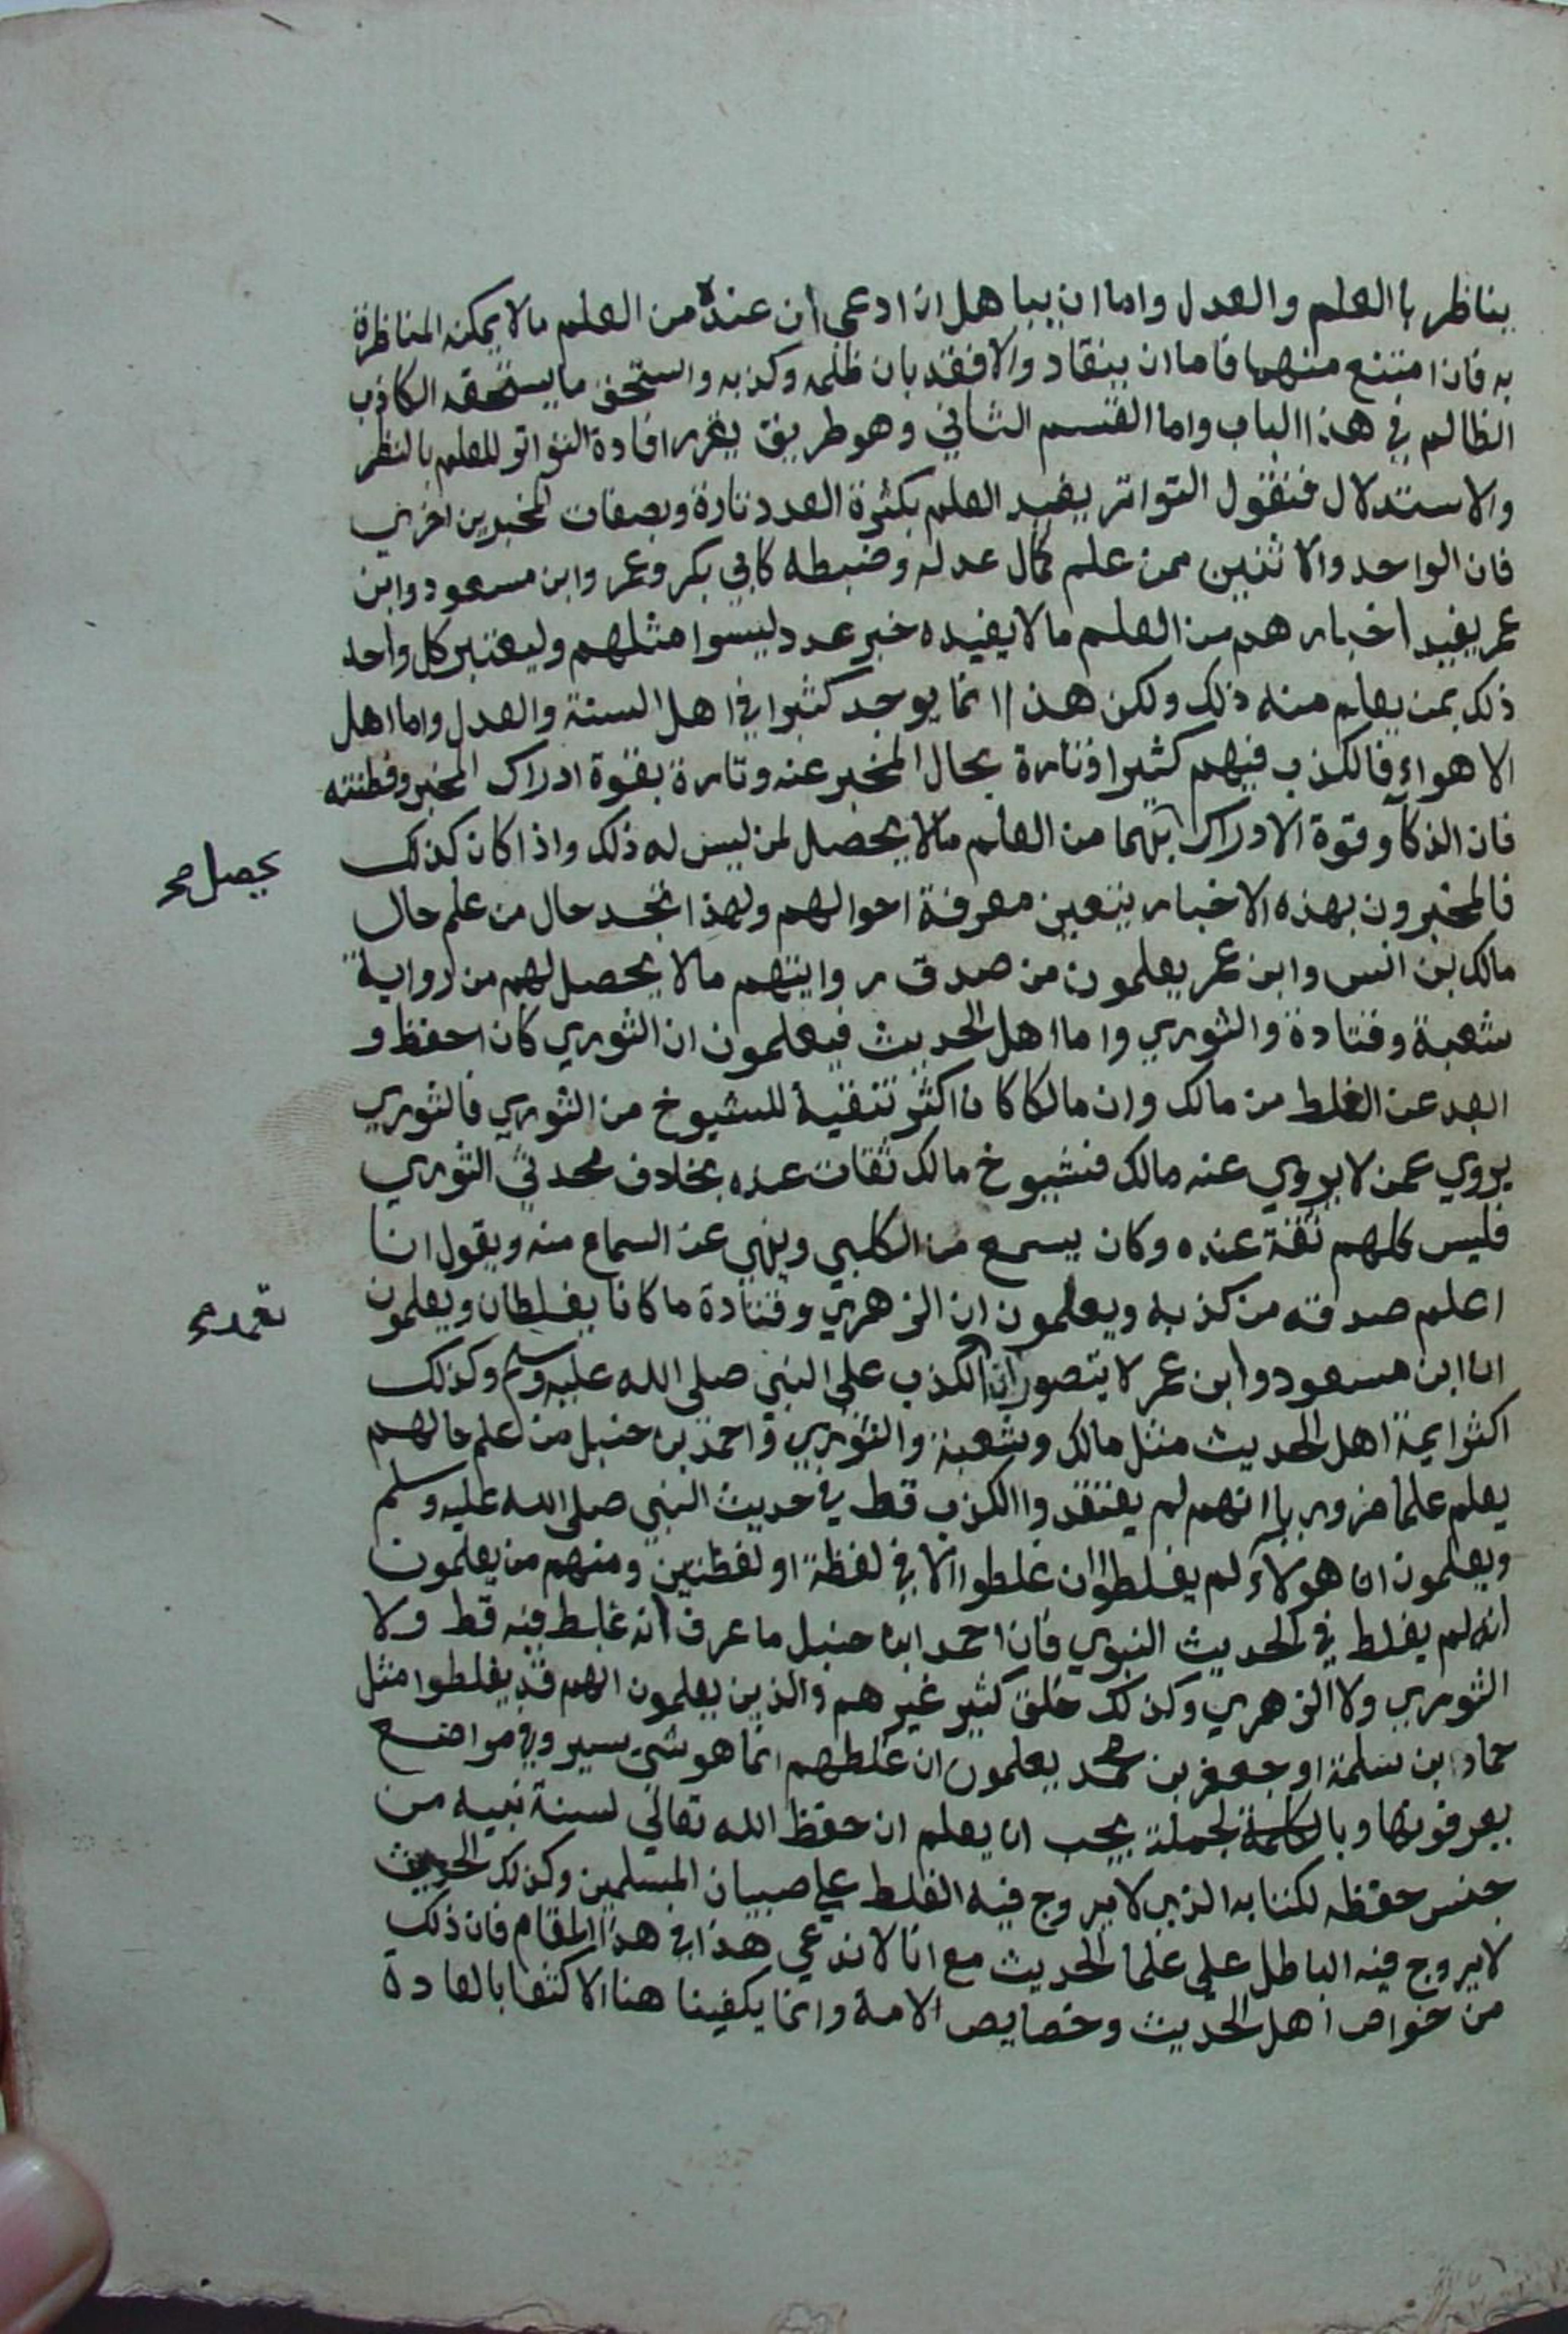 يناظر باالعلم والعدل واما ان يباهل ان ادعى ان عنده من العلم مالا يمكنه المناظرة
به فان امتنع منهما فاما ان ينقاد والا فقد بان ظلمه وكذبه واستحق ما يستحقه الكاذب
الظالم في هذا الباب واما القسم الثاني وهو طريق يقرر افادة التواتر للعلم بالنظر
والاستدلال فنقول التواتر يفيد العلم بكثرة العدد تارة وبصفات المخبرين اخري
فان الواحد والاثنين ممن علم كمال عدله وضبطه كابي بكر وعمر وابن مسعود وابن
عمر يفيد اخبارهم من العلم ما لا يفيده خبر عدد ليسوا مثلهم وليعتبر كل واحد
ذلك بمن يعلم منه ذلك ولكن هذا انما يوجد كثيرا في اهل السنة والعدل واما اهل
الاهواء فالكذب فيهم كثيرا وتارة بحال المخبر عنه وتارة بقوة ادراك المخبر وفطنته
فان الذكآ وقوة الادراك بهما من العلم مالا يحصل لمن ليس له ذلك واذا كان كذلك
يحصل صح
فالمخبرون بهذه الاخبار يتعين معرفة احوالهم ولهذا نجد حال من علم حال
مالك بن انس وابن عمر يعلمون من صدق روايتهم مالا يحصل لهم من رواية
شعبة وقتادة والثوري واما اهل الحديث فيعلمون ان الثوري كان احفظ و
ابعد عن الغلط من مالك وان مالكا كان اكثر تنقية للشيوخ من الثوري فالثوري
يروي عمن لا يروي عنه مالك فشيوخ مالك ثقات عده بخلاف محدثي الثوري
فليس كلهم ثقة عنده وكان يسمع من الكلبي وينهي عن السماع منه ويقول انا
اعلم صدقه من كذبه ويعلمون ان الزهري وقتادة ما كانا يغلطان ويعلمون
تعمد صح
ان ابن مسعود وابن عمر لا يتصوران الكذب على النبي صلى الله عليه وسلم وكذلك
اكثر ايمة اهل الحديث مثل مالك وشعبة والثوري واحمد بن حنبل من علم حالهم
يعلم علما ضروريا انهم لم يعتقدوا الكذب قط في حديث النبي صلى الله عليه وسلم
ويعلمون ان هولآء لم يغلطوا وان غلطوا الا في لفظة او لفظتين ومنهم من يعلمون
انه لم يغلط في الحديث النبوي فان احمد ابن حنبل ما عرف انه غلط فيه قط ولا
الثوري ولا الزهري وكذلك خلق كثير غيرهم والذين يعلمون انهم قد يغلطوا مثل
حماد ابن سلمة او جعفر بن محمد يعلمون ان غلطهم انما هو شي يسير وفي مواضع
يعرفونها وبالكلمة لجملة يجب ان يعلم ان حفظ الله تعالى لسنة نبيه من
جنس حفظه لكتابه الذي لا يروج فيه الغلط على صبيان المسلمين وكذلك الحديث
لا يروج فيه الباطل على علما الحديث مع انا لا ندعي هذا في هذا المقام فان ذلك
من خواص اهل الحديث وخصايص الامة وانما يكفينا هنا الاكتفا بالعادة